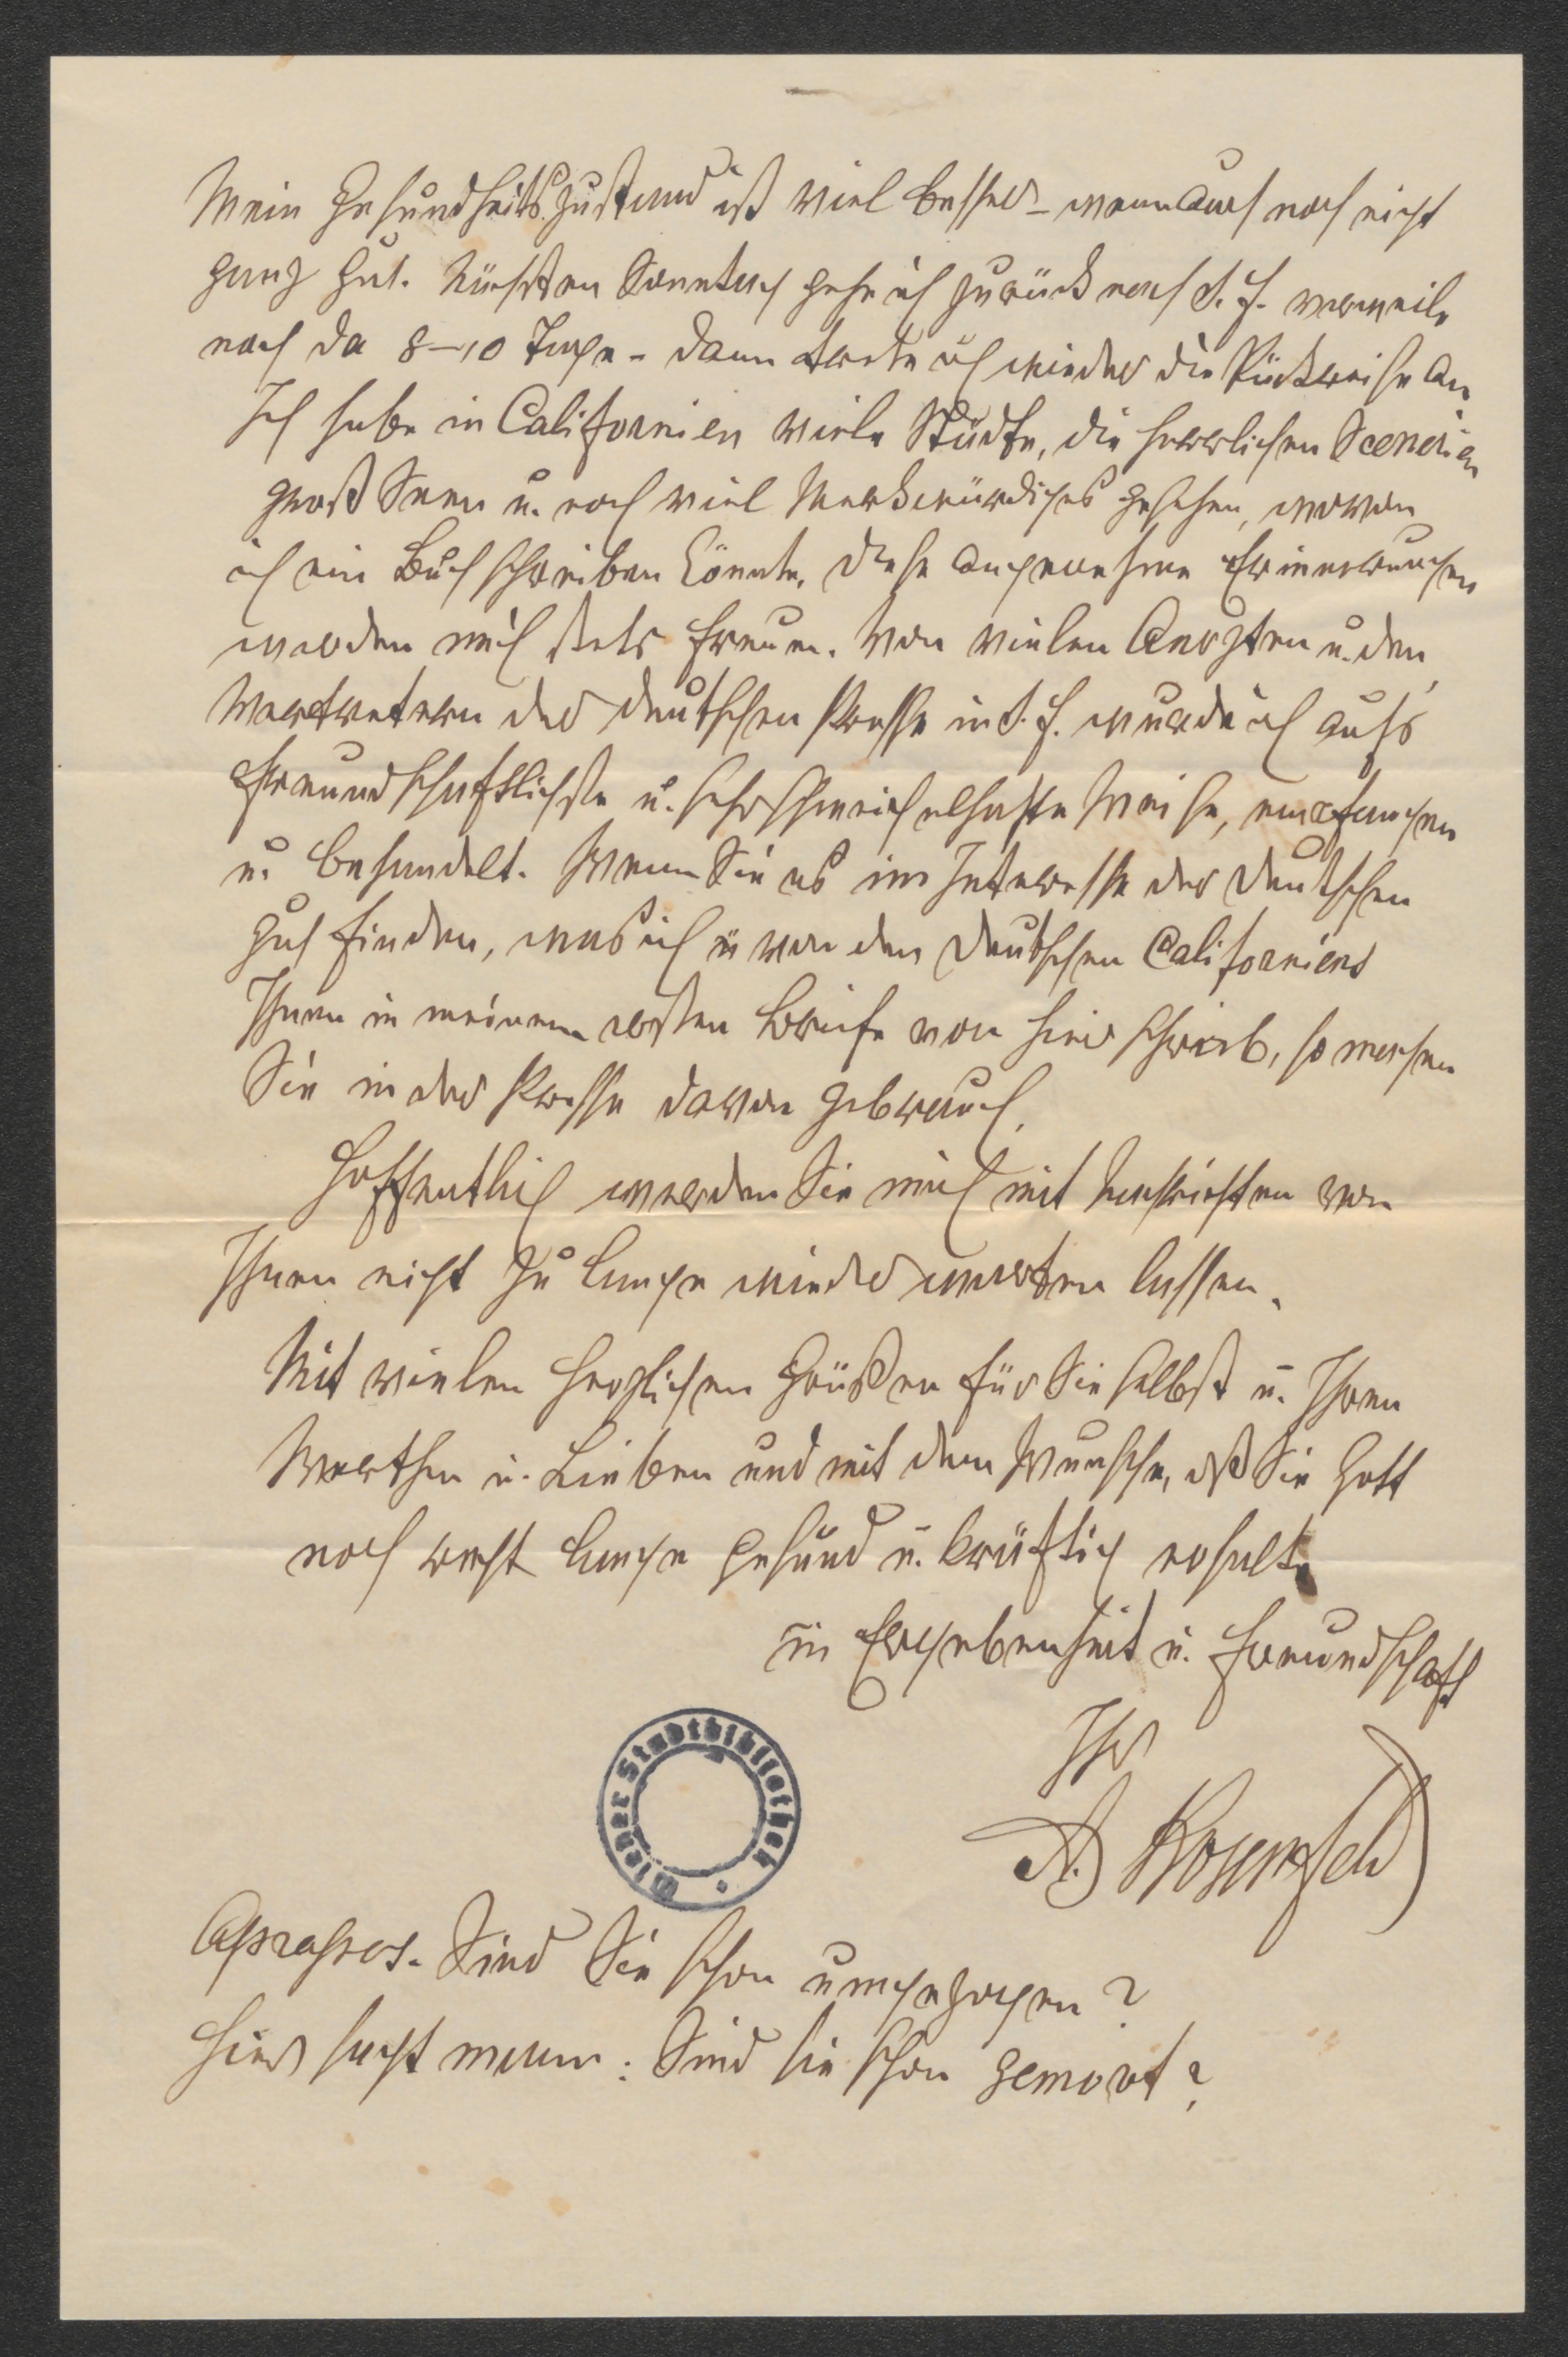 Mein Gesundheitszustand ist viel besser – wenn auch noch nicht
ganz gut. Nächsten Sonntag gehe ich zurück nach S. F. verweile
noch da 8–10 Tage – dann trete ich wieder die Rückreise an
Ich habe in Californien viele Städte, die herrlichen Scenerien
groß Seen u. noch viel Merkwürdiges gesehen, wovon
ich ein Buch schreiben könnte, diese angenehme Erinnerungen
werden mich stets freuen. Von vielen Aerzten u. den
Vertretern der deutschen Presse in S. F. wurde ich aufs
freundschaftlichste u. sehr schmeichelhafte Weise, empfangen
u. behandelt. Wenn Sie es im Interesse der Deutschen
gut finden, was ich von den Deutschen Californiens
Ihnen in meinem ersten Briefe von hier schrieb, so machen
Sie in der Presse davon gebrauch.
Hoffentlich werden Sie mich mit Nachrichten von
Ihnen nicht zu lange wieder warten lassen.
Mit vielen herzlichen Grüßen für Sie selbst u. Ihren
Werthen u. Lieben und mit dem Wunsche, dß Sie Gott
noch recht lange gesund u. kräftig erhalte
in Ergebenheit u. Freundschaft
Ihr
A. Rosenfeld
Wiener Stadtbibliothek
Apropos. Sind Sie schon umgezogen?
Hier sagt mann: Sind sie schon gemovt?